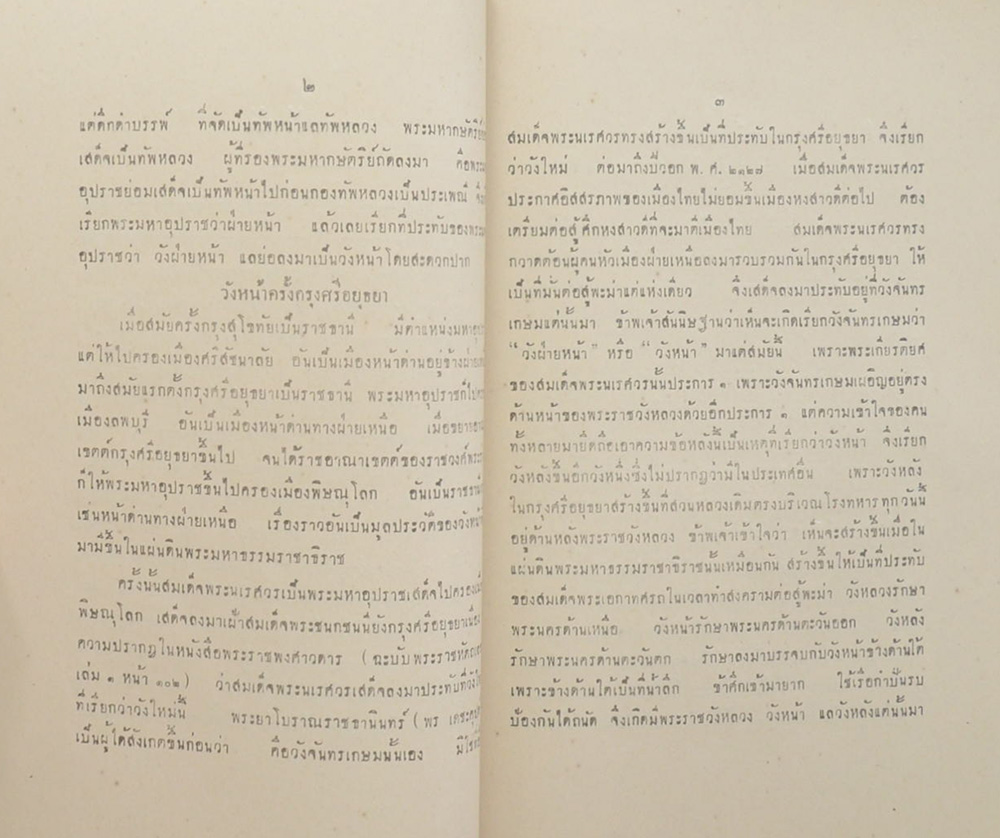 ๒
แต่ดึกดำบรรพ์ ที่จัดเป็นทัพหน้าแลทัพหลวง พระมหากษัตริย์
เสด็จเป็นทัพหลวง ผู้ที่รองพระมหากษัตริย์ถัดลงมา คือพระ
อุปราชย่อมเสด็จเป็นทัพหน้าไปก่อนกองทัพหลวงเป็นประเพณี จึง
เรียกพระมหาอุปราชว่าฝ่ายหน้า แล้วเลยเรียกที่ประทับของพระ
อุปราชว่า วังฝ่ายหน้า แลย่อลงมาเป็นวังหน้าโดยสะดวกปาก
วังหน้าครั้งกรุงศรีอยุธยา
เมื่อสมัยครั้งกรุงสุโขทัยเป็นราชธานี มีตำแหน่งมหาอุป
แต่ให้ไปครองเมืองศรีสัชนาลัย อันเป็นเมืองหน้าด่านอยู่ข้างฝ่าย
มาถึงสมัยแรกตั้งกรุงศรีอยุธยาเป็นราชธานี พระมหาอุปราชก็ไป
เมืองลพบุรี อันเป็นเมืองหน้าด่านทางฝ่ายเหนือ เมื่อขยาย
เขตต์กรุงศรีอยุธยาขึ้นไป จนได้ราชอาณาเขตต์ของราชวงศ์พระ
ก็ให้พระมหาอุปราชขึ้นไปครองเมืองพิษณุโลก อันเป็นราชธานี
เช่นหน้าด่านทางฝ่ายเหนือ เรื่องราวอันเป็นมูลประวัติของวังหน้า
มามีขึ้นในแผ่นดินพระมหาธรรมราชาธิราช
ครั้งนั้นสมเด็จพระนเรศวรเป็นพระมหาอุปราชเสด็จไปครองเมือง
พิษณุโลก เสด็จลงมาเฝ้าสมเด็จพระชนกชนนียังกรุงศรีอยุธยาเนืองๆ
ความปรากฏในหนังสือพระราชพงศาวดาร (ฉะบับพระราชหัตถเลขา
เล่ม ๑ หน้า ๑๐๒) ว่าสมเด็จพระนเรศวรเสด็จลงมาประทับที่วังใหม่
ที่เรียกว่าวังใหม่นี้ พระยาโบราณราชธานินทร์ (พร เดชะคุปต์
เป็นผู้ได้สังเกตขึ้นก่อนว่า คือวังจันทรเกษมนั้นเอง มิใช่ที่อื่น
๓
สมเด็จพระนเรศวรทรงสร้างขึ้นเป็นที่ประทับในกรุงศรีอยุธยา จึงเรียก
ว่าวังใหม่ ต่อมาถึงปีวอก พ. ศ. ๒๑๒๗ เมื่อสมเด็จพระนเรศวร
ประกาศอิสสรภาพของเมืองไทยไม่ยอมขึ้นเมืองหงสาวดีต่อไป ต้อง
เตรียมต่อสู้ศึกหงสาวดีที่จะมาตีเมืองไทย สมเด็จพระนเรศวรทรง
กวาดต้อนผู้คนหัวเมืองฝ่ายเหนือลงมารวบรวมกันในกรุงศรีอยุธยา ให้
เป็นที่มั่นต่อสู้พะม่าแต่แห่งเดียว จึงเสด็จลงมาประทับอยู่ที่วังจันทร
เกษมแต่นั้นมา ข้าพเจ้าสันนิษฐานว่าเห็นจะเกิดเรียกวังจันทรเกษมว่า
“วังฝ่ายหน้า” หรือ “วังหน้า” มาแต่สมัยนี้ เพราะพระเกียรติยศ
ของสมเด็จพระนเรศวรนั้นประการ ๑ เพราะวังจันทรเกษมเผอิญอยู่ตรง
ด้านหน้าของพระราชวังหลวงด้วยอีกประการ ๑ แต่ความเข้าใจของคน
ทั้งหลายมายึดถือเอาความข้อหลังนี้เป็นเหตุที่เรียกว่าวังหน้า จึงเรียก
วังหลังขึ้นอีกวังหนึ่งซึ่งไม่ปรากฏว่ามีในประเทศอื่น เพราะวังหลัง
ในกรุงศรีอยุธยาสร้างขึ้นที่สวนหลวงเดิมตรงบริเวณโรงทหารทุกวันนี้
อยู่ด้านหลังพระราชวังหลวง ข้าพเจ้าเข้าใจว่า เห็นจะสร้างขึ้นเมื่อใน
แผ่นดินพระมหาธรรมราชาธิราชนั้นเหมือนกัน สร้างขึ้นให้เป็นที่ประทับ
ของสมเด็จพระเอกาทศรถในเวลาทำสงครามต่อสู้พะม่า วังหลวงรักษา
พระนครด้านเหนือ วังหน้ารักษาพระนครด้านตะวันออก วังหลัง
รักษาพระนครด้านตะวันตก รักษาลงมาบรรจบกับวังหน้าข้างด้านใต้
เพราะข้างด้านใต้เป็นที่น้ำลึก ข้าศึกเข้ามายาก ใช้เรือกำปั่นรบ
ป้องกันได้ถนัด จึงเกิดมีพระราชวังหลวง วังหน้า แลวังหลังแต่นั้นมา